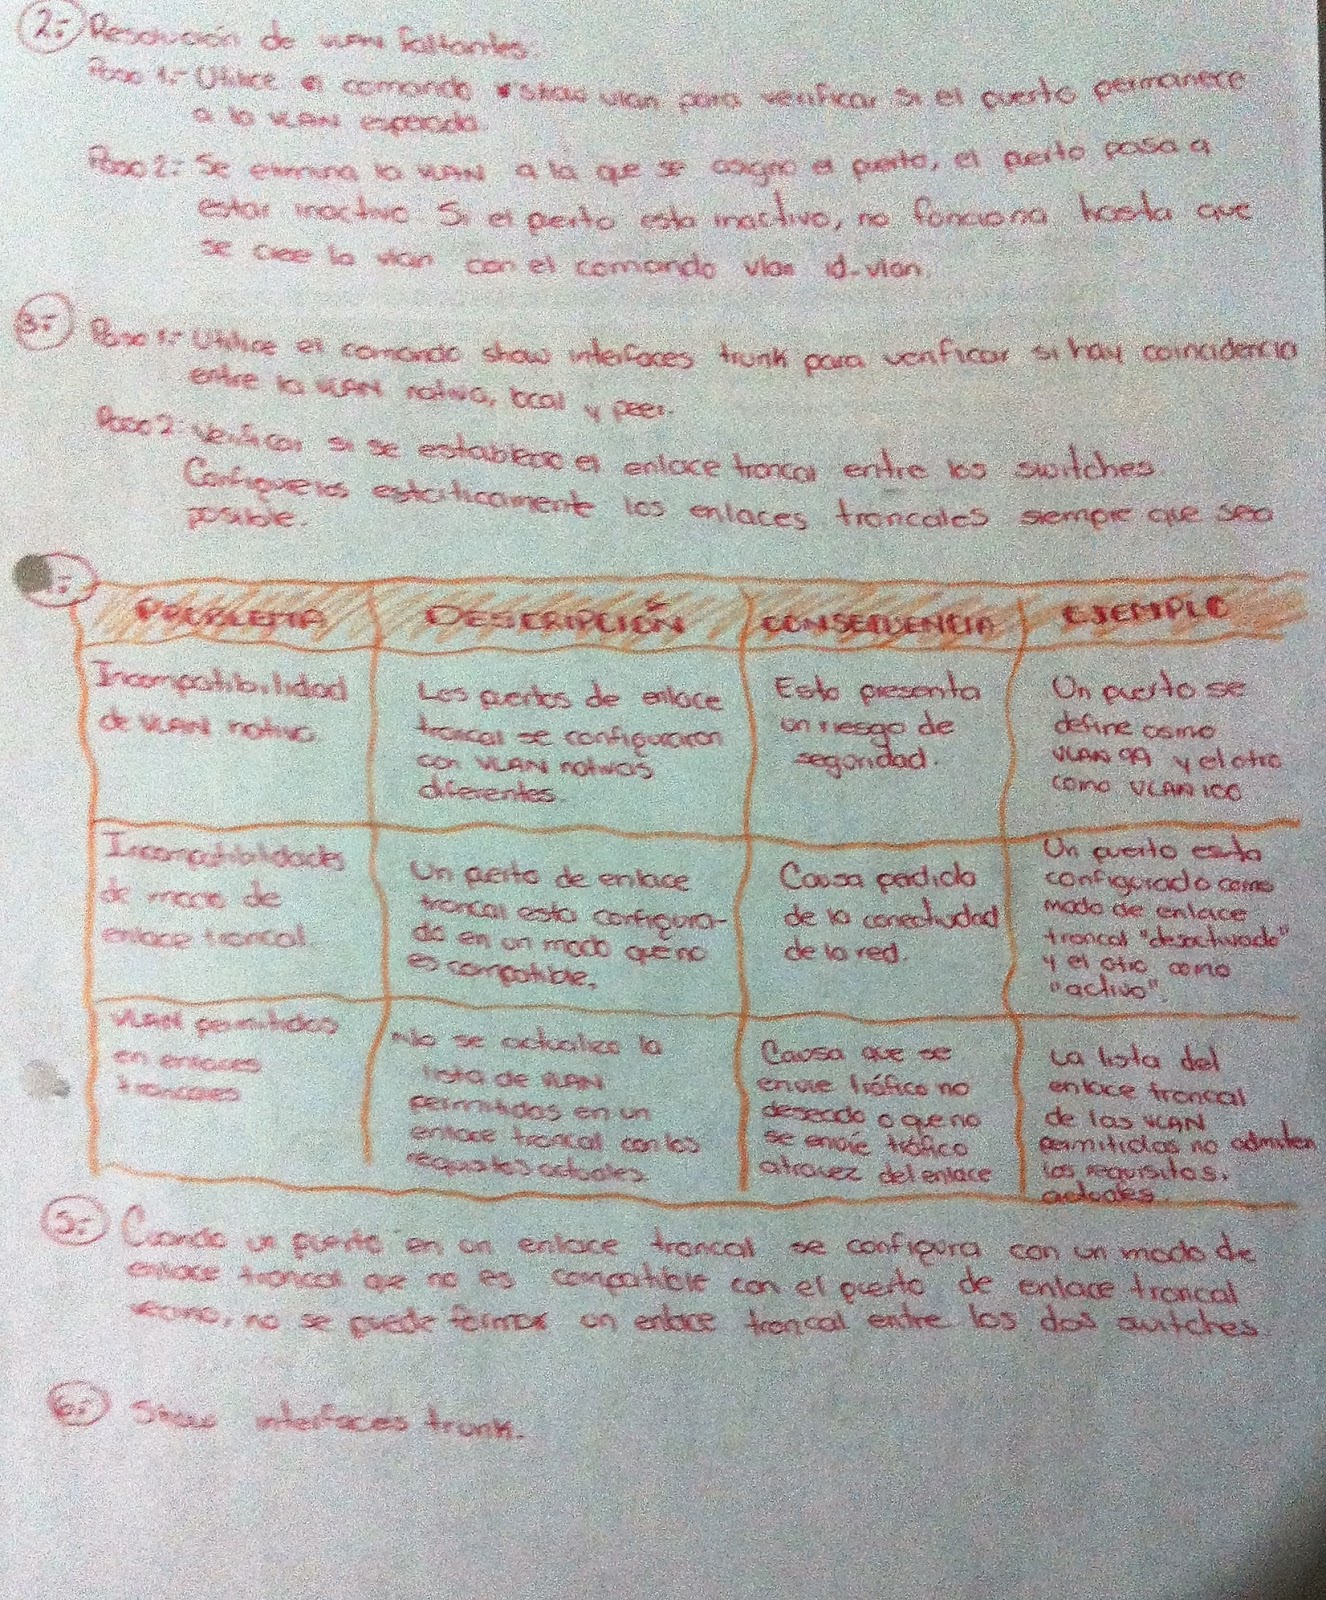 2.- Resolución de VLAN faltantes.
Paso 1.- Utilice el comando show vlan para verificar si el puerto permanece
a la VLAN esperada.
Paso 2.- Se elimina la VLAN a la que se asigno el puerto, el puerto pasa a
estar inactivo. Si el puerto esta inactivo, no funciona hasta que
se cree la vlan con el comando vlan id-vlan.
3.- Paso 1.- Utilice el comando show interfaces trunk para verificar si hay coincidencia
entre la VLAN nativa, local y peer.
Paso 2.- Verificar si se establece el enlace troncal entre los switches.
Configure los estaticamente los enlaces troncales siempre que sea
posible.
PROBLEMA DESCRIPCIÓN CONSECUENCIA EJEMPLO
Incompatibilidad
de VLAN nativa.
Los puertos de enlace
troncal se configuraron
con VLAN nativas
diferentes.
Esto presenta
un riesgo de
seguridad.
Un puerto se
define como
VLAN 99 y el otro
como VLAN 100
Incompatibilidades
de modo de
enlace troncal.
Un puerto de enlace
troncal esta configura-
do en un modo que no
es compatible.
Causa perdida
de la conectividad
de la red.
Un puerto esta
configurado como
modo de enlace
troncal "desactivado"
y el otro como
"activo".
VLAN permitidas
en enlaces
troncales
No se actualizo la
lista de VLAN
permitidas en un
enlace troncal con los
requisitos actuales.
Causa que se
envie tráfico no
deseado o que no
se envíe tráfico
atravez del enlace
La lista del
enlace troncal
de las VLAN
permitidas no admiten
los requisitos.
actuales.
5.- Cuando un puerto en un enlace troncal se configura con un modo de
enlace troncal que no es compatible con el puerto de enlace troncal
vecino, no se puede formar un enlace troncal entre los dos switches.
6.- Show interfaces trunk.